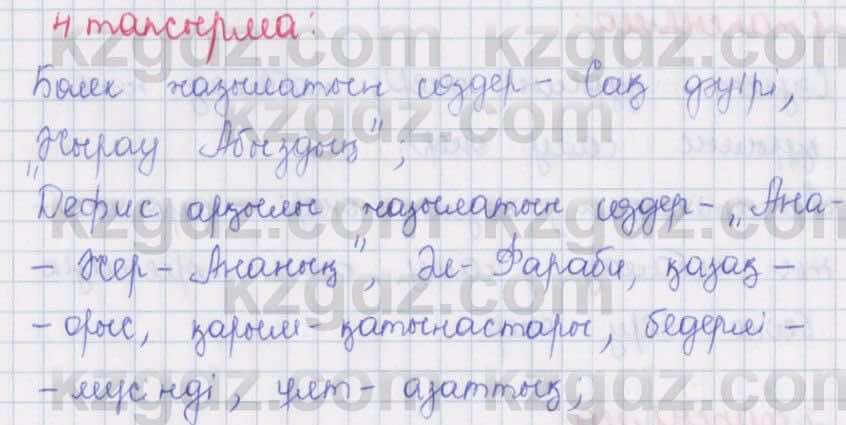 4 тапсырма:
Бөлек жазылатын сөздер - Сақ дәуірі,
"Жырау Абыздың";
Дефис арқылы жазылатын сөздер - „Ана-
- Жер - Ананың", Әл- Фараби, қазақ -
- орыс, қарым - қатынастары, бедерлі -
- мүсінді, ұлт - азаттық;
kzgdz.com